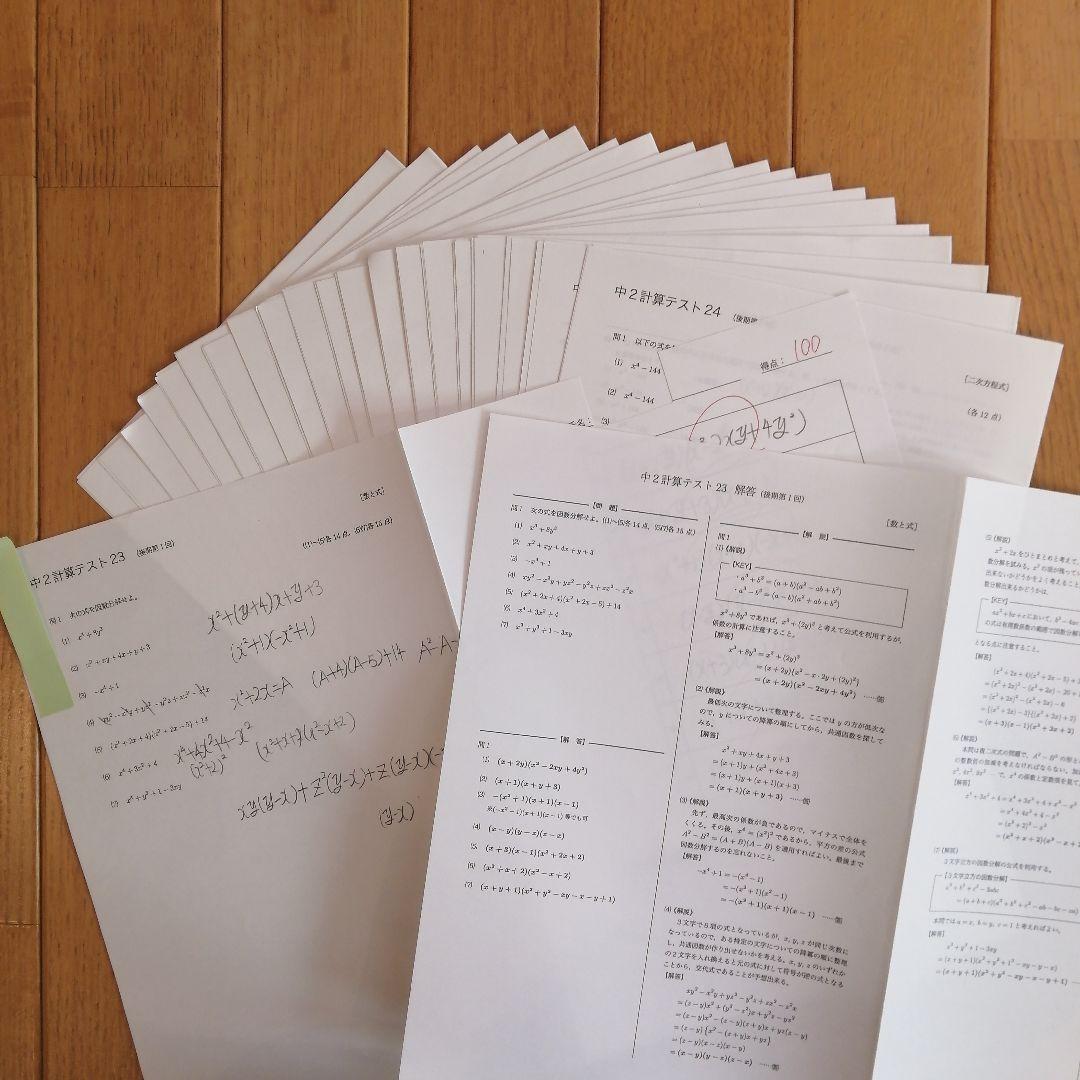 中２計算テスト24 （後期第
問1 以下の式を
(1) x⁴－144
(2) x⁴－144
(3)
得点： 100
[二次方程式]
（各12点）
x(y+4y²)
[数と式]
中２計算テスト23 （後期第1回）
((1)～(5)各14点，(6)(7)各15点)
問1 次の式を因数分解せよ。
(1) x³＋8y³
(2) x²＋xy＋4x＋y＋3
(3) －x⁴＋1
(5) (x²＋2x＋4)(x²＋2x－5)＋14
(6) x⁴＋3x²＋4
(7) x³＋y³＋1－3xy
x²+(y+4)x+y+3
(x²+1)(-x²+1)
x²+2x=A (A+4)(A-5)+14 A²-A-
x⁴+4x²+4-x²
(x²+2)²
(x²+x+2)(x²-x+2)
xy(y-x)+z²(y-x)+z(y-x)(-
(y-x)
中２計算テスト23 解答 （後期第1回）
[数と式]
【問 題】
問1 次の式を因数分解せよ。((1)～(5)各14点，(6)(7)各15点)
(1) x³＋8y³
(2) x²＋xy＋4x＋y＋3
(3) －x⁴＋1
(4) xy²－x²y＋yz²－y²z＋zx²－z²x
(5) (x²＋2x＋4)(x²＋2x－5)＋14
(6) x⁴＋3x²＋4
(7) x³＋y³＋1－3xy
【解 答】
問1
(1) (x＋2y)(x²－2xy＋4y²)
(2) (x＋1)(x＋y＋3)
(3) －(x²＋1)(x＋1)(x－1)
※(－x²－1)(x＋1)(x－1) 等でも可
(4) (x－y)(y－z)(z－x)
(5) (x＋3)(x－1)(x²＋2x＋2)
(6) (x²＋x＋2)(x²－x＋2)
(7) (x＋y＋1)(x²＋y²－xy－x－y＋1)
【解 説】
問1
(1)《解説》
【KEY】
・a³＋b³＝(a＋b)(a²－ab＋b²)
・a³－b³＝(a－b)(a²＋ab＋b²)
x³＋8y³であれば，x³＋(2y)³と考えて公式を利用するが，
係数の計算に注意すること。
【解答】
x³＋8y³＝x³＋(2y)³
＝(x＋2y)(x²－x・2y＋(2y)²)
＝(x＋2y)(x²－2xy＋4y²) ……㊎
(2)《解説》
最低次の文字について整理する。ここではyの方が低次な
ので，yについての降冪の順にしてから，共通因数を探して
みる。
【解答】
x²＋xy＋4x＋y＋3
＝(x＋1)y＋(x²＋4x＋3)
＝(x＋1)y＋(x＋1)(x＋3)
＝(x＋1)(x＋y＋3)
(3)《解説》
先ず，最高次の係数が負であるので，マイナスで全体を
くくる。その後，x⁴＝(x²)²であるから，平方の差の公式
A²－B²＝(A＋B)(A－B)を適用すればよい。最後まで
因数分解するのを忘れないこと。
【解答】
－x⁴＋1＝－(x⁴－1)
＝－(x²＋1)(x²－1)
＝－(x²＋1)(x＋1)(x－1)
(4)《解説》
３文字で６項の式となっているが，x, y, zが同じ次数に
なっているので，ある特定の文字についての降冪の順に整理
し，共通因数が作り出せないかを考える。x, y, zのいずれか
の２文字を入れ換えると元の式に対して符号が逆の式となる
ことから，交代式であることが予想出来る。
【解答】
xy²－x²y＋yz²－y²z＋zx²－z²x
＝(z－y)x²＋(y²－z²)x＋yz²－y²z
＝(z－y)x²－(z－y)(z＋y)x＋yz(z－y)
＝(z－y){x²－(z＋y)x＋yz}
＝(z－y)(x－z)(x－y)
＝(x－y)(y－z)(z－x)
(5)《解説》
x²＋2xをひとまとめと考えて，
【KEY】
となる点に注意すること。
【解答】
(x²＋2x＋4)(x²＋2x－5)＋
＝(x²＋2x)²－(x²＋2x)－20＋
＝(x²＋2x)²－(x²＋2x)－6
＝{(x²＋2x)－3}{(x²＋2x)＋2}
＝(x＋3)(x－1)(x²＋2x＋2)
(6)《解説》
本問は複二次式の問題で，A²－B²の形と
【解答】
x⁴＋3x²＋4＝x⁴＋3x²＋4＋x²－x²
＝x⁴＋4x²＋4－x²
＝(x²＋2)²－x²
＝(x²＋x＋2)(x²－x＋
(7)《解説》
３文字立方の因数分解の公式を利用する。
【３文字立方の因数分解】
a³＋b³＋c³－3abc
＝(a＋b＋c)(a²＋b²＋c²－ab－bc－ca)
本問ではa＝x, b＝y, c＝1と考えればよい。
【解答】
x³＋y³＋1－3xy
＝(x＋y＋1)(x²＋y²＋1²－xy－y－x)
＝(x＋y＋1)(x²＋y²－xy－x－y＋1)